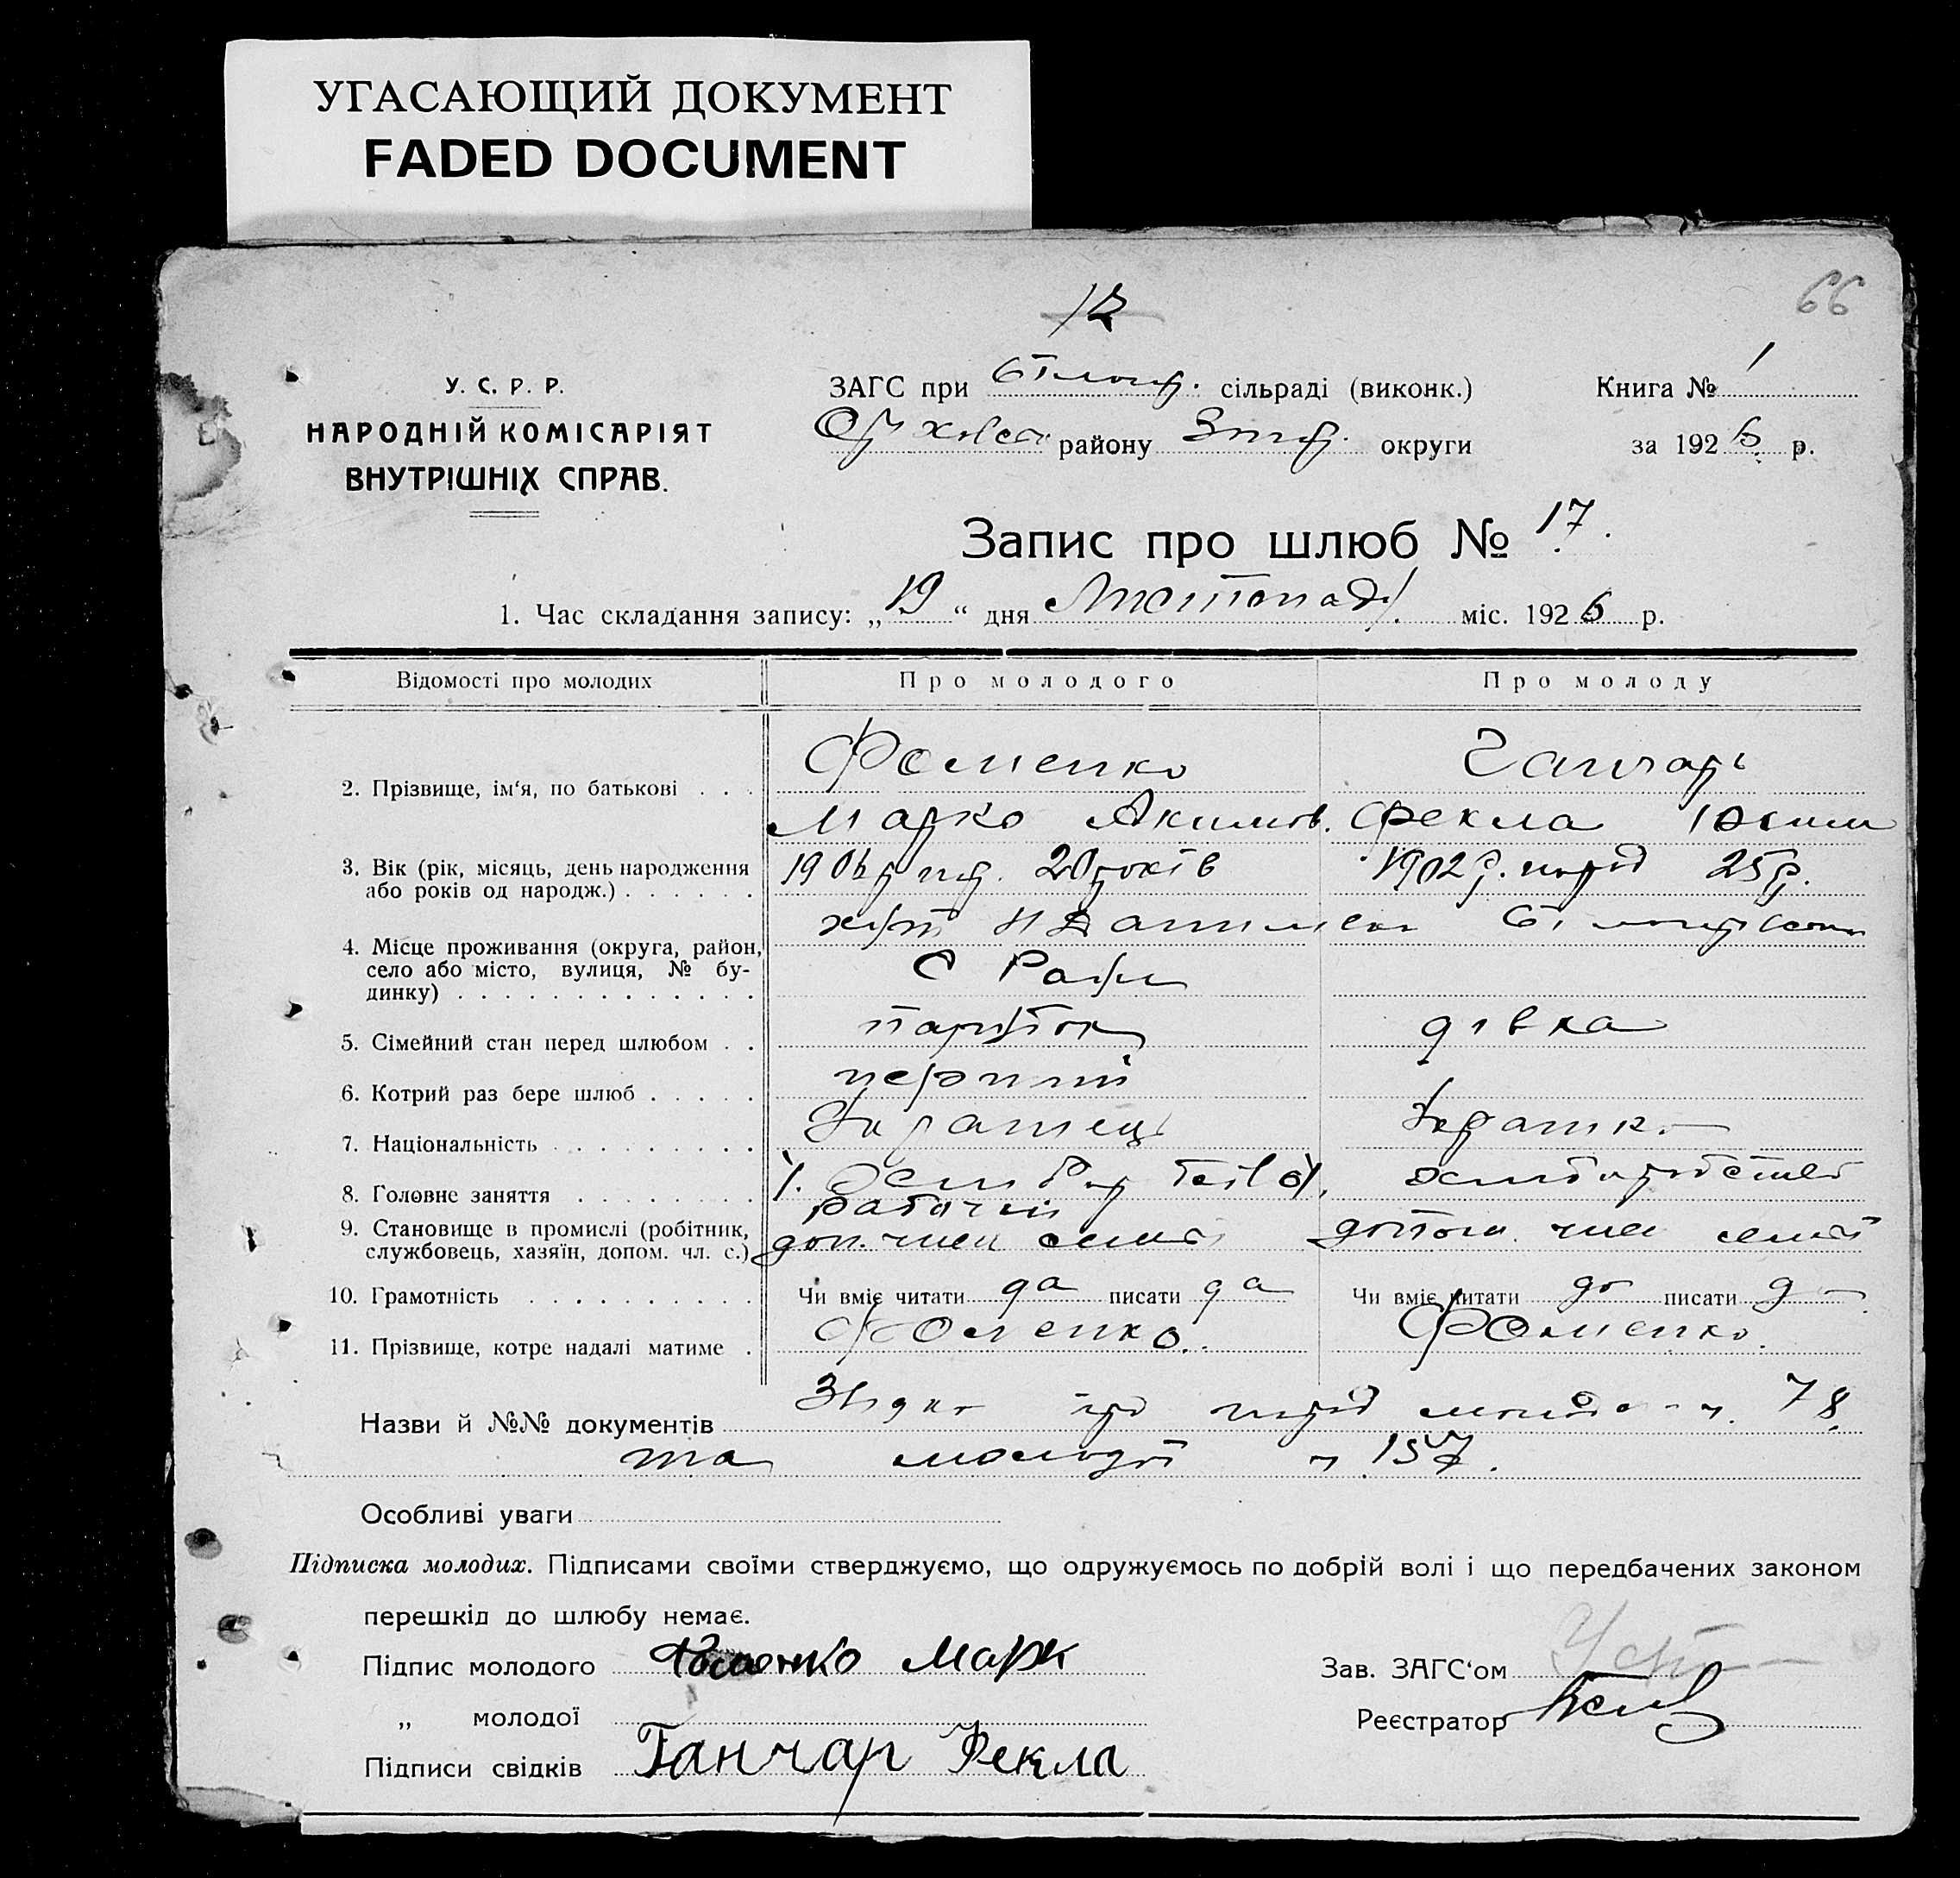 УГАСАЮЩИЙ ДОКУМЕНТ
FADED DOCUMENT
66
12
У. С. Р. Р.
НАРОДНІЙ КОМІСАРІЯТ
ВНУТРІШНІХ СПРАВ.
ЗАГС при сільраді (виконк.)
району округи
Книга № 1
за 1926 р.
Запис про шлюб № 17.
1. Час складання запису: „19“ дня Листопада міс. 1926 р.
Відомості про молодих Про молодого Про молоду
2. Прізвище, ім‘я, по батькові . . .
Фоменко Ганчарь
Марко Акимов. Фекла
3. Вік (рік, місяць, день народження
або років од народж.) . . . . . .
1906 р. нар. 20 років 1902 р. нород 25 р.
4. Місце проживання (округа, район,
село або місто, вулиця, № бу-
динку) . . . . . . . . . . . . .
хут
С Ради
5. Сімейний стан перед шлюбом . .
парубок дівка
6. Котрий раз бере шлюб . . . . .
перший
7. Національність . . . . . . . . .
Українець Українка
8. Головне заняття . . . . . . . .
9. Становище в промислі (робітник,
службовець, хазяїн, допом. чл. с.)
рабочий
доп. член семьї допом. член семьї
10. Грамотність . . . . . . . . . .
Чи вміє читати да писати да Чи вміє читати да писати да
11. Прізвище, котре надалі матиме .
Фоменко. Фоменко.
Назви й №№ документів про 78
та молодої 157.
Особливі уваги
Підписка молодих. Підписами своїми стверджуємо, що одружуємось по добрій волі і що передбачених законом
перешкід до шлюбу немає.
Підпис молодого Фоменко Марк
„ молодої
Підписи свідків Ганчар Фекла
Зав. ЗАГС‘ом
Реєстратор